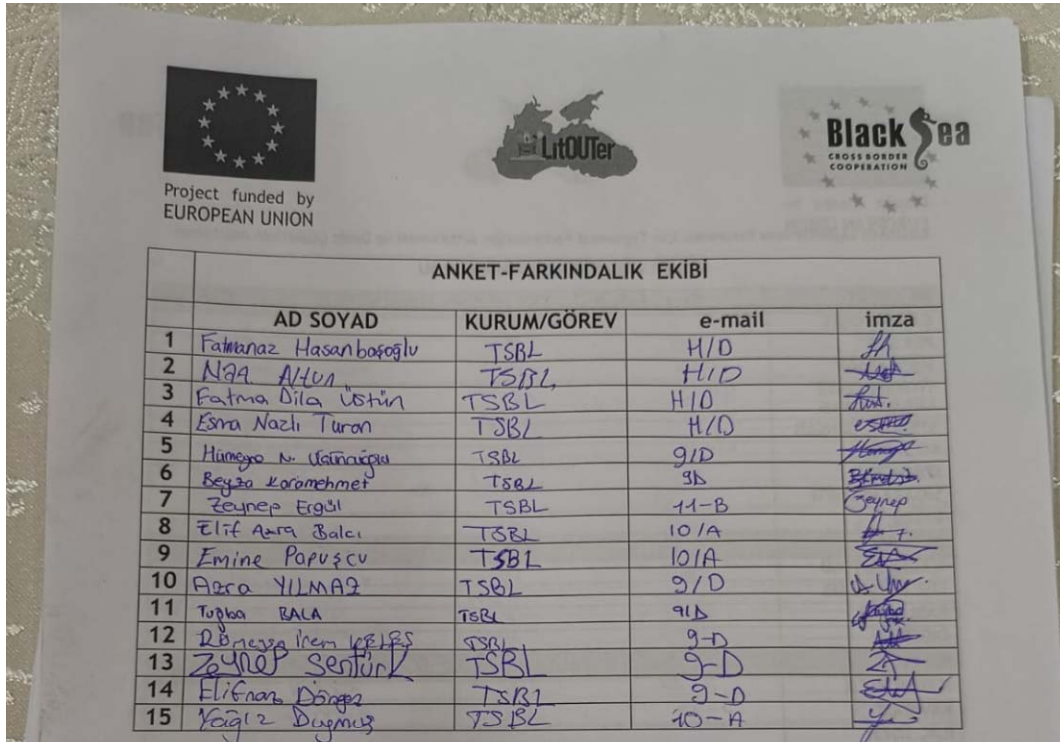 Project funded by
EUROPEAN UNION
LitOUTer
Black Sea
CROSS BORDER
COOPERATION
ANKET-FARKINDALIK EKİBİ
AD SOYAD KURUM/GÖREV e-mail imza
1 Fatmanaz Hasanbaşoğlu TSBL H/D
2 Altun TSBL H/D
3 Fatma Dila Üstün TSBL H/D
4 Esma Nazlı Turan TSBL H/D
5 N. TSBL 9/D
6 Beyza Karamehmet TSBL 9D
7 Zeynep Ergül TSBL 11-B Zeynep
8 Elif Azra Balcı TSBL 10/A
9 Emine Papuşcu TSBL 10/A
10 Azra YILMAZ TSBL 9/D
11 Tuğba BALA TSBL 9/D
12 İrem TSBL 9-D
13 Zeynep Şentürk TSBL 9-D
14 Elifnaz TSBL 9-D
15 Yağız TSBL 10-A